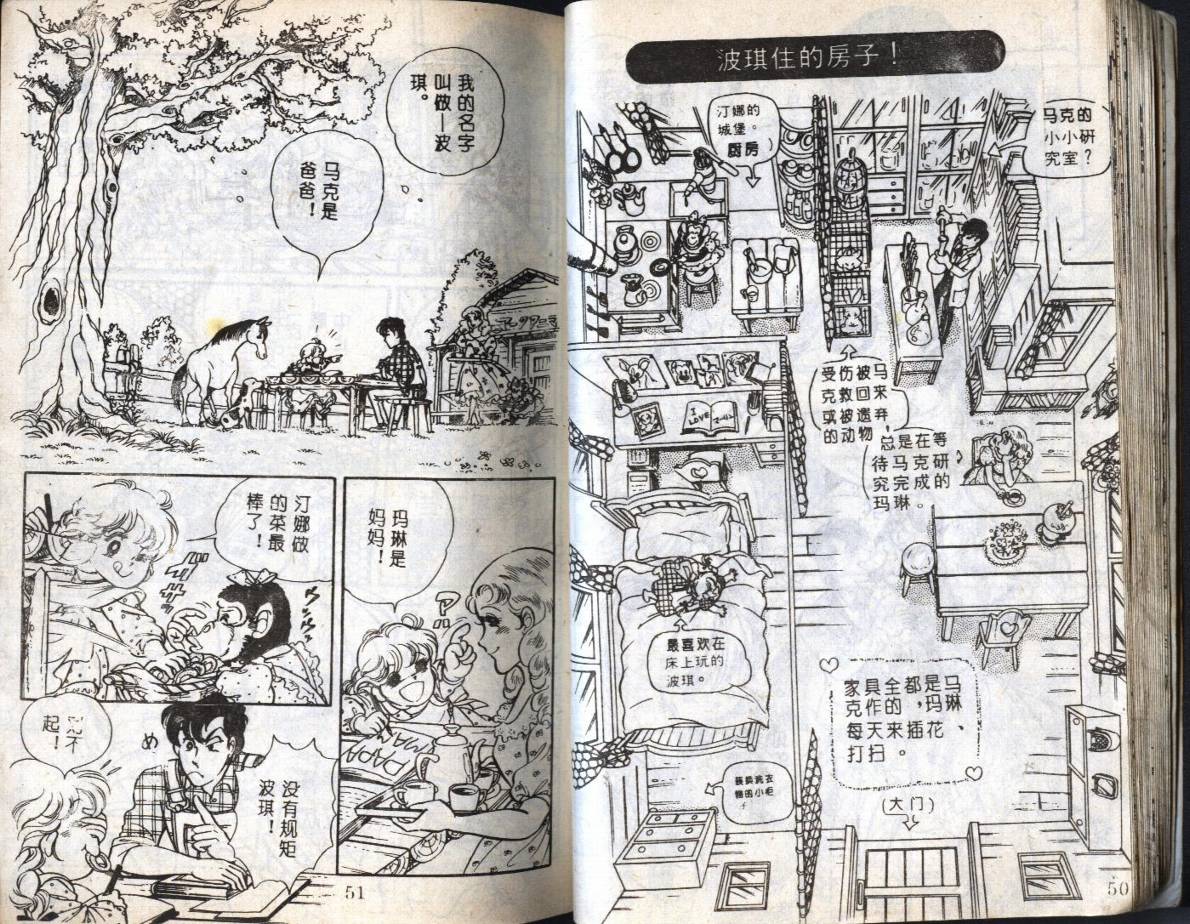 波琪住的房子！
马克的
小小研
究室？
汀娜的
城堡。
厨房
受伤被马
克救回来
或被遗弃
的动物！
总是在等
待马克研
究完成的
玛琳。
I
LOVE
最喜欢在
床上玩的
波琪。
家具全都是马
克作的，玛琳
每天来插花、
打扫。
(大门)
50
我的名字
叫做—波
琪。
马克是
爸爸！
玛琳是
妈妈！
PAPA
汀娜做
的菜最
棒了！
没有规矩
波琪！
め
起！
51